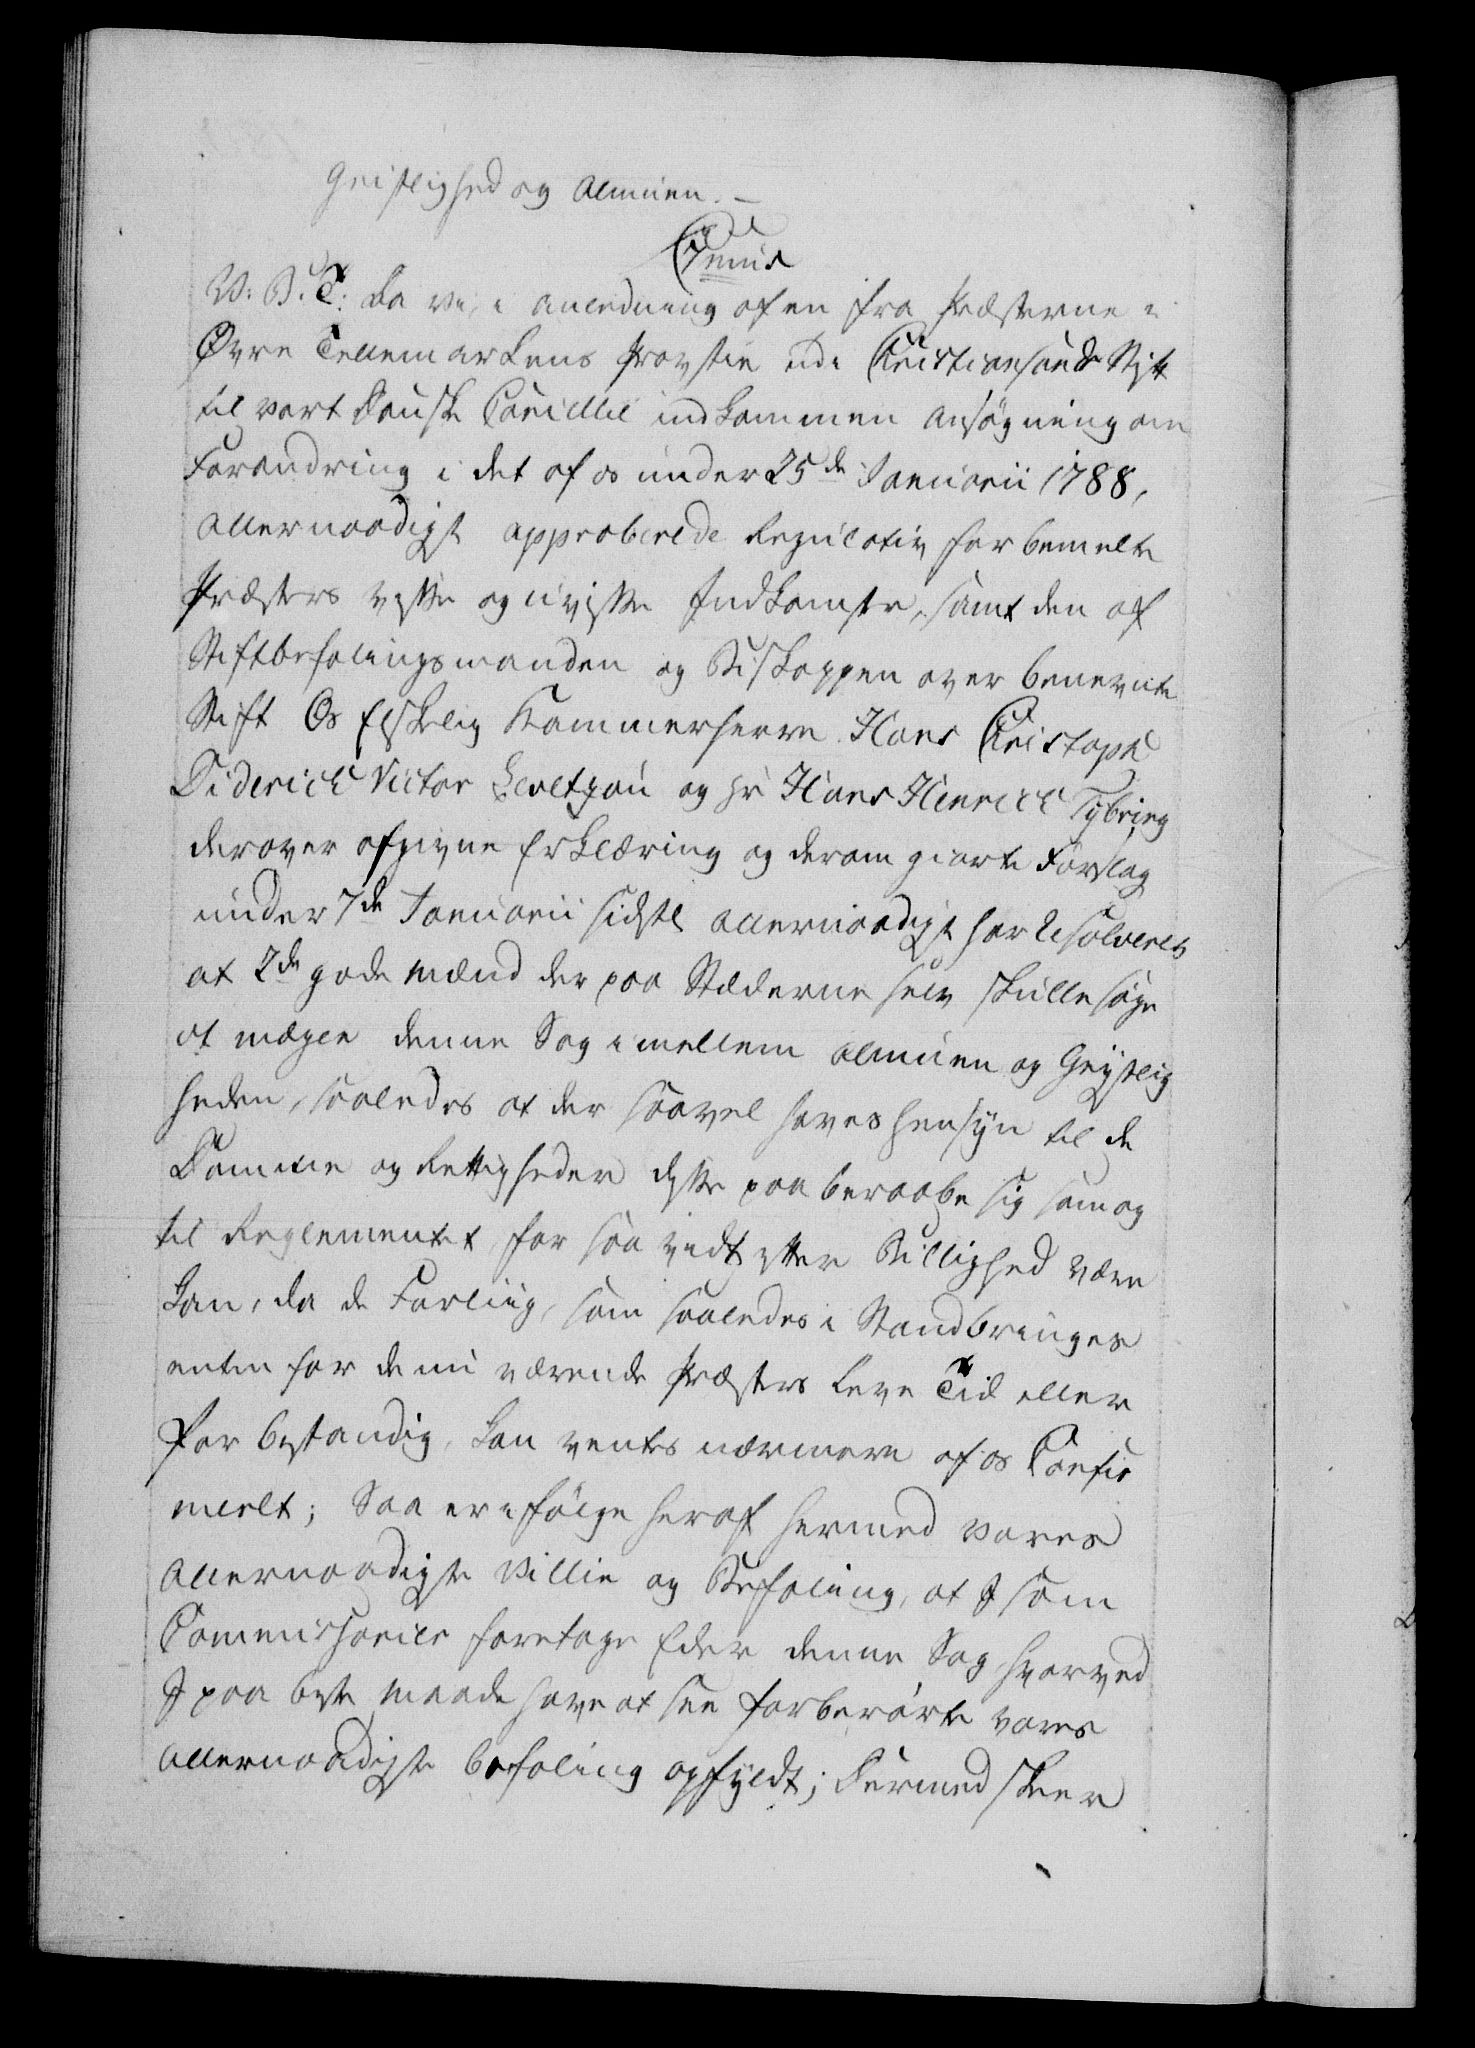 Geistlighed og Almuen. –
C7tmus
V: B. T: Da vi, i anledning af en fra Præsterne i
Øvre Tellemarkens Provstie udi Christiansands Stift
til vort Danske Cancellie indkommen Ansøgning om
Forandring i det af os under 25de Januarii 1788,
allernaadigst approberede Regulativ for bemelte
Præsters visse og uvisse Indkomster, samt den af
Stiftbefalingsmanden og Biskoppen over benevnte
Stift Os Elskelig Kammerherre Hans Christoph
Diderich Victor Levetzau og Hr Hans Henrich Tybring
derover afgivne Erklæring og derom giorte Forslag
under 7de Januarii sidstl allernaadigst har resolveret
at 2de gode Mænd der paa Stæderne selv skulle søge
at mægle denne Sag imellem Almuen og Geistlig
heden, saaledes at der saavel haves hensyn til de
Domme og Rettigheder disse paaberaabe sig som og
til Reglementet, for saa vidt efter Billighed være
kan, da de Forliig, som saaledes i Standbringes
enten for de nu værende Præsters Leve Tid eller
for bestandig, kan ventes nærmere af os Confir
meret; Saa er i følge heraf hermed vores
allernaadigste Villie og Befaling, at I som
Commissarier foretage Eder denne Sag, hvorved
I paa beste Maade have at see forberørte vores
allernaadigste befaling opfyldt; Dermed skeer